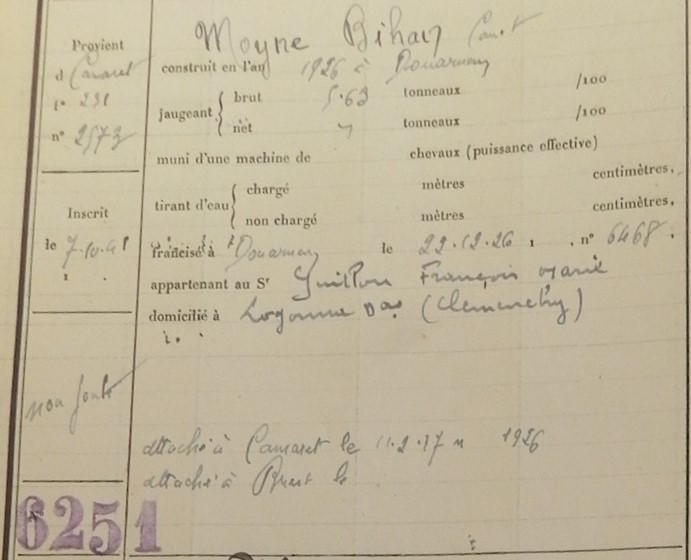 Provient
d Camaret
f° 231
n° 2573
Inscrit
le 7.10.41
non ponté
6251
Moyne Bihan Canot
construit en l'an 1926 à Douarnenez
jaugeant { brut 5.63 tonneaux /100
net " tonneaux /100
muni d'une machine de chevaux (puissance effective)
tirant d'eau { chargé mètres centimètres,
non chargé mètres centimètres,
francisé à Douarnenez le 22.12.26 , n° 6468.
appartenant au Sr François Marie
domicilié à Logonna Das
attaché à Camaret le 11.2.37 n 1926
attaché à Brest le